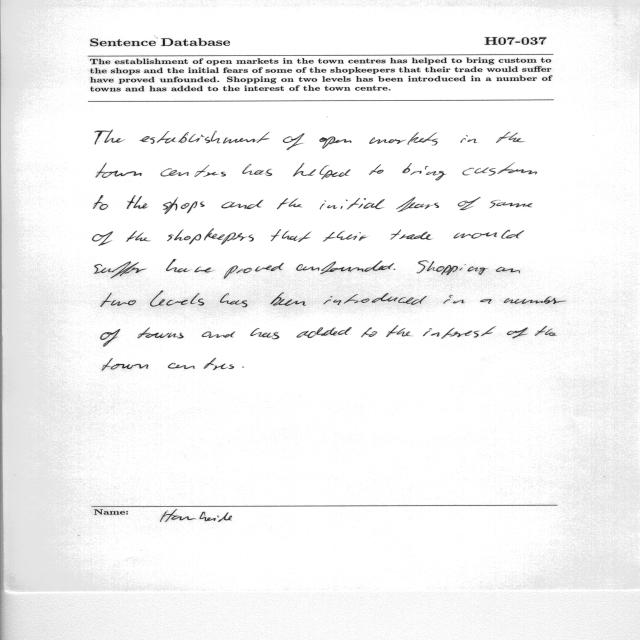 Sentence Database H07-037
The establishment of open markets in the town centres has helped to bring custom to
the shops and the initial fears of some of the shopkeepers that their trade would suffer
have proved unfounded. Shopping on two levels has been introduced in a number of
towns and has added to the interest of the town centre.
The establishment of open markets in the
town centres has helped to bring custom
to the shops and the initial fears of some
of the shopkeepers that their trade would
suffer have proved unfounded. Shopping on
two levels has been introduced in a number
of towns and has added to the interest of the
town centres.
Name: